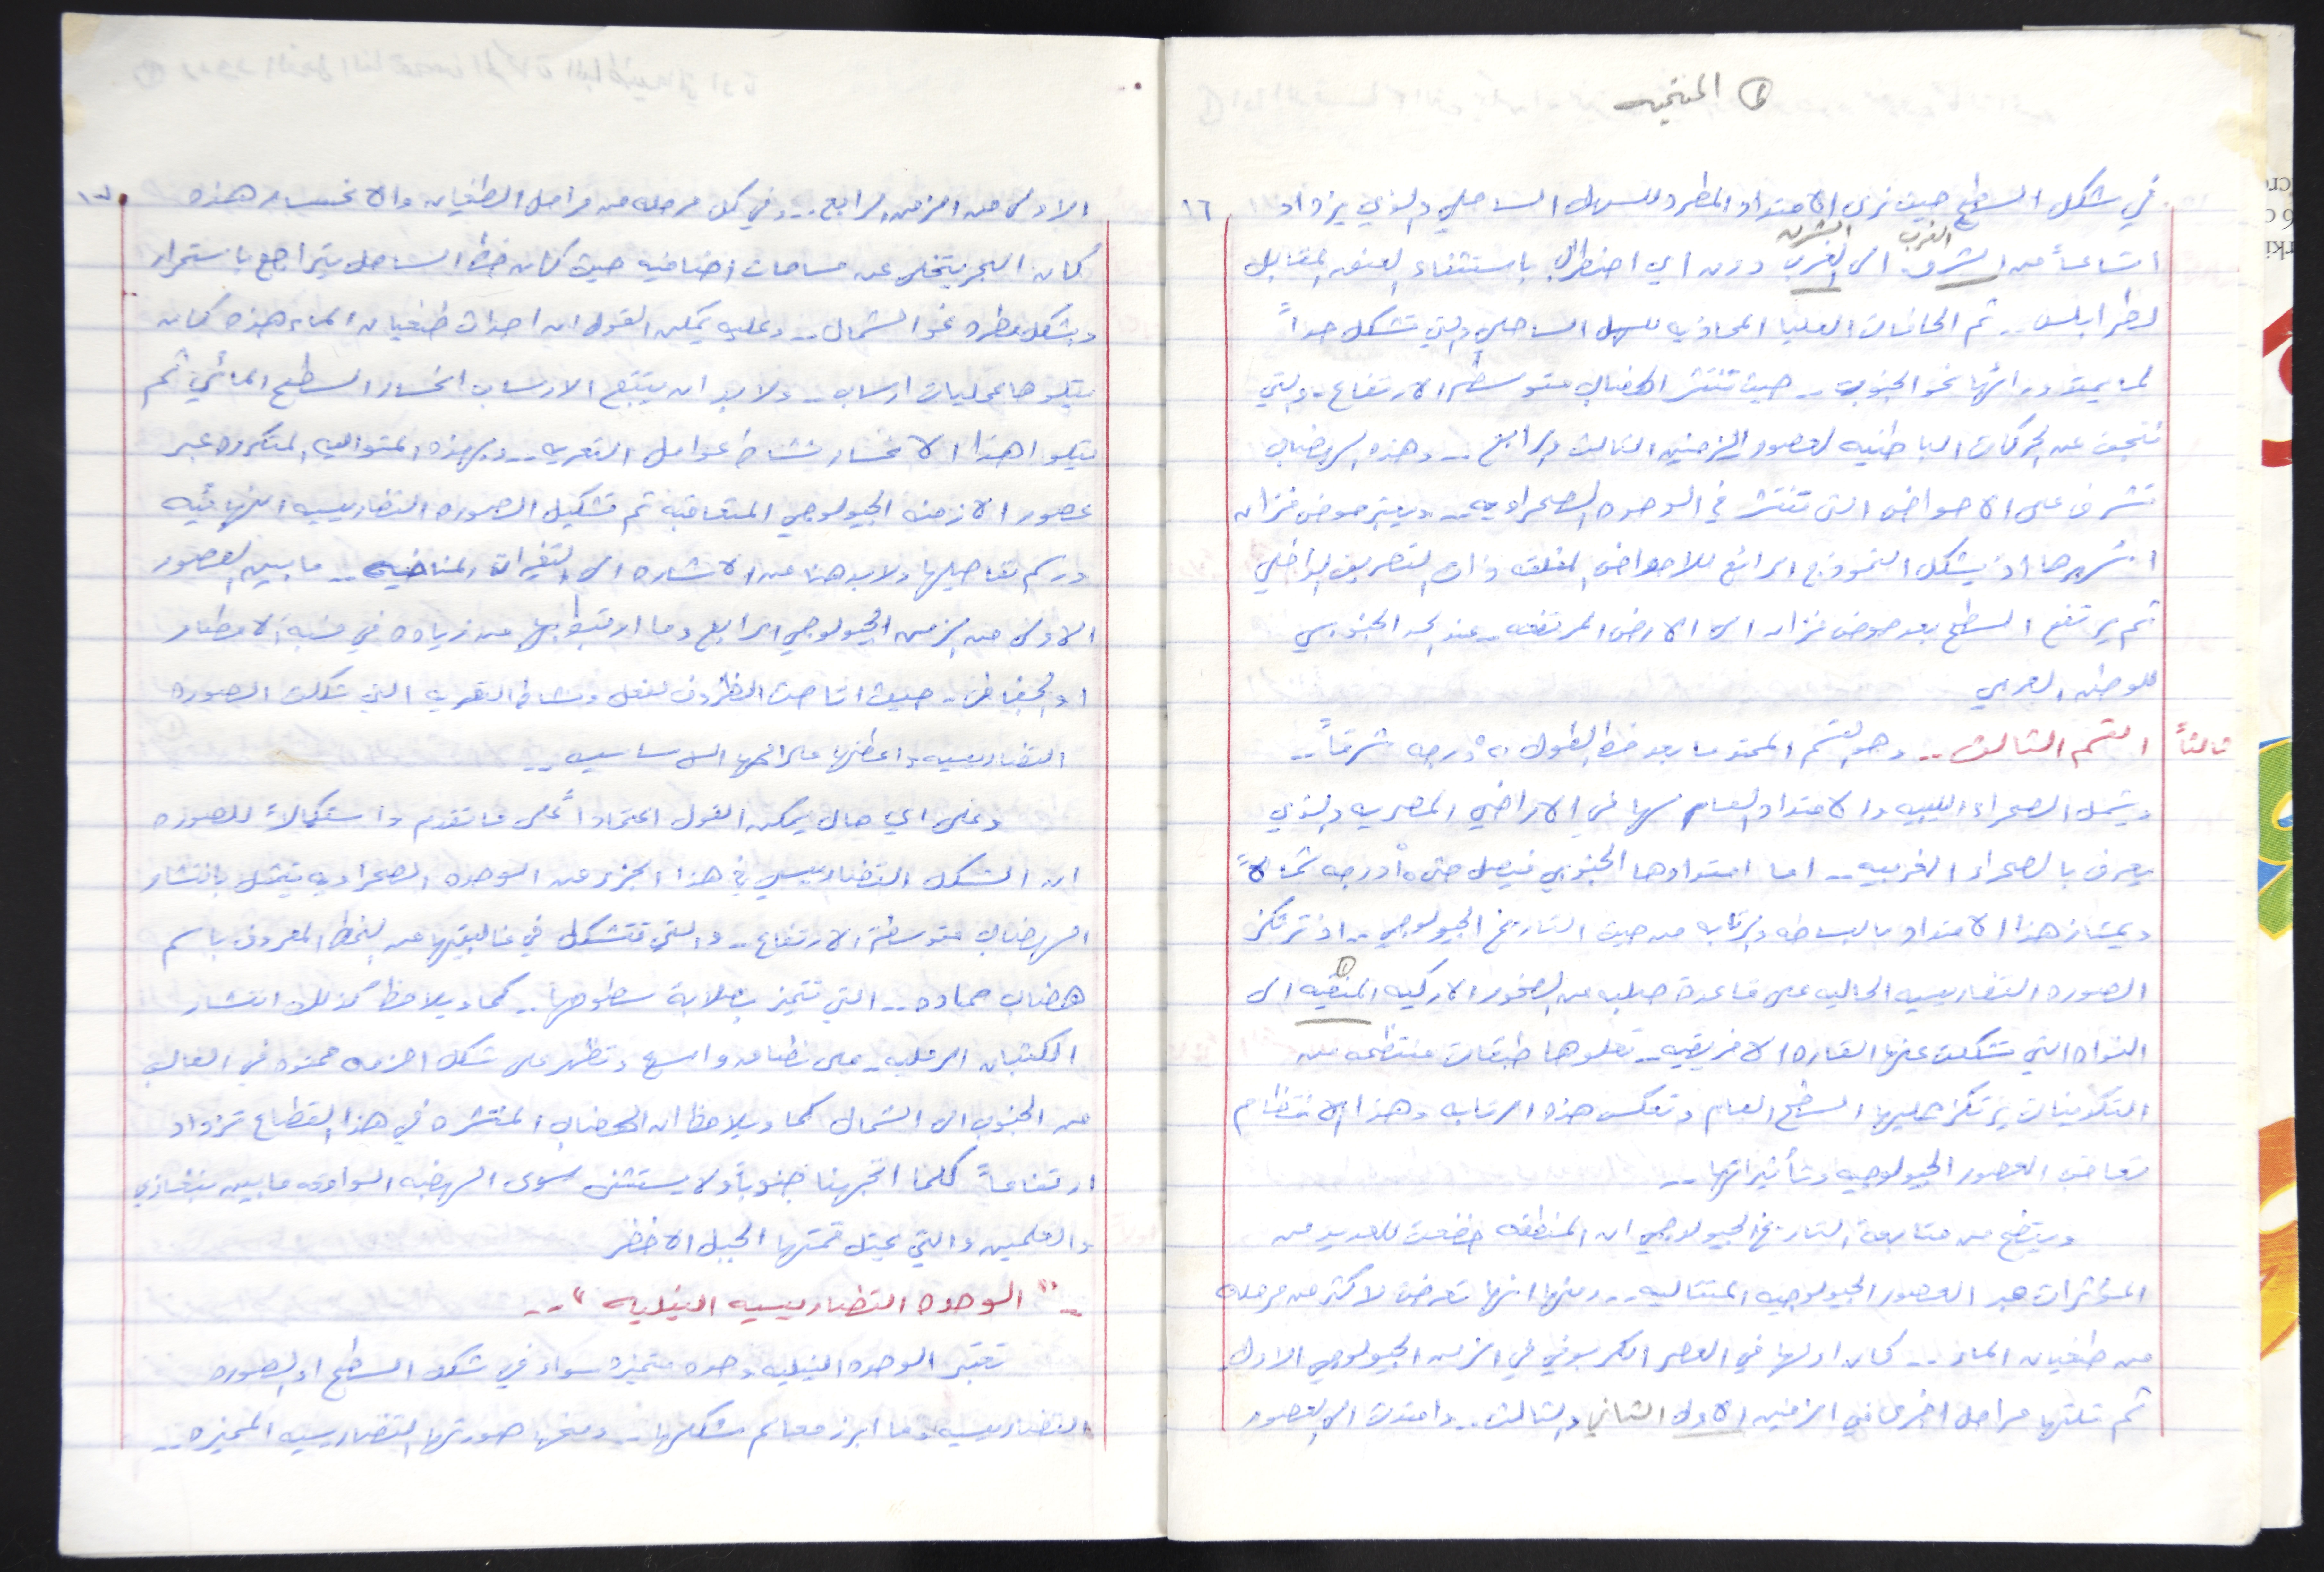 ① المنتميه
١٦
في شكل السطح حيث نرى الامتداد المطرد للسهل الساحلي والذي يزداد
الغرب الشرق
اتساعاً من الشرق الى الغرب دون اي اضطراب باستثناء العنق المقابل
لطرابلس .. ثم الحافات العليا المحاذيه للسهل الساحلي والتي تشكل حداً
لما يمتد ورائها نحو الجنوب .. حيث تنتشر الهضاب متوسطة الارتفاع .. والتي
نتجت عن الحركات الباطنيه لعصور الزمنين الثالث والرابع .. وهذه الهضاب
تشرف على الاحواض التي تنتشر في الوحده الصحراويه .. ويعتبر حوض فزان
اشهرها اذ يشكل النموذج الرائع للاحواض المغلقه ذات التصريف الداخلي
ثم يرتفع السطح بعد حوض فزان الى الارض المرتفعه .. عند الحد الجنوبي
للوطن العربي
ثالثاً القسم الثالث .. وهو القسم الممتد ما بعد خط الطول ٥٠ درجه شرقاً ..
ويشمل الصحراء الليبيه والامتداد العام لها في الاراضي المصريه والذي
يعرف بالصحراء الغربيه .. اما امتدادها الجنوبي فيصل حتى ١٥ درجه شمالاً
ويمتاز هذا الامتداد بالبساطه والرتابه من حيث التاريخ الجيولوجي .. اذ ترتكز
①
الصوره التضاريسيه الحاليه على قاعدة صلبه من الصخور الاركيه المنتميه الى
النواه التي تشكلت عنها القاره الافريقيه .. تعلوها طبقات منتظمه من
التكوينات يرتكز عليها السطح العام وتعكس هذه الرتابه وهذا الانتظام
تعاقب العصور الجيولوجيه وتأثيراتها ..
ويتضح من متابعة التاريخ الجيولوجي ان المنطقه خضعت للعديد من
المؤثرات عبر العصور الجيولوجيه المتتاليه .. ومنها انها تعرضت لاكثر من مرحله
من طغيان الماء .. كان اولها في العصر الكربوني في الزمن الجيولوجي الاول
ثم تلتها مراحل اخرى في الزمنين الاول الثاني والثالث .. وامتدت الى العصور
١٧
الاولى من الزمن الرابع .. وفي كل مرحله من مراحل الطغيان والانحسار هذه
كان البحر يتخلى عن مساحات اضافيه حيث كان خط الساحل يتراجع باستمرار
وبشكل مطرد نحو الشمال .. وعليه يمكن القول ان احداث طغيان الماء هذه كان
يتلوها عمليات ارساب .. ولابد ان يتبع الارساب انحسار السطح المائي ثم
يتلوا هذا الانحسار نشاط عوامل التعريه .. وبهذه المتواليه المتكرره عبر
عصور الازمنه الجيولوجي المتعاقبة تم تشكيل الصوره التضاريسيه النهائيه
ورسم تفاصيلها ولابد هنا من الاشاره الى التغيرات المناخيه .. ما بين العصور
الاولى من الزمن الجيولوجي الرابع وما ارتبط بها من زياده في نسبة الامطار
او الجفاف .. حيث اتاحت الظروف لفعل ونشاط التعريه التي شكلت الصوره
التضاريسيه واعطتها ملامحها الاساسيه ..
وعلى اي حال يمكن القول اعتماداً على ما تقدم واستكمالاً للصوره
ان الشكل التضاريسي في هذا الجزء من الوحده الصحراويه يتمثل بانتشار
الهضاب متوسطة الارتفاع .. والتي تتشكل في غالبيتها من النمط المعروف باسم
هضاب حماده .. التي تتميز بصلابة سطوحها .. كما ويلاحظ كذلك انتشار
الكثبان الرمليه .. على نطاق واسع وتظهر على شكل احزمه ممتده في الغالب
من الجنوب الى الشمال كما ويلاحظ ان الهضاب المنتشره في هذا القطاع تزداد
ارتفاعاً كلما اتجهنا جنوباً ولا يستثنى سوى الهضبه الواقعه ما بين بنغازي
والعلمين والتي يحتل قمتها الجبل الاخضر
.. " الوحده التضاريسيه النيليه " ..
تعتبر الوحده النيليه وحده متميزه سواء في شكل السطح او الصوره
التضاريسيه وما ابرز معالم شكلها .. ومنحها صورتها التضاريسيه المميزه ..